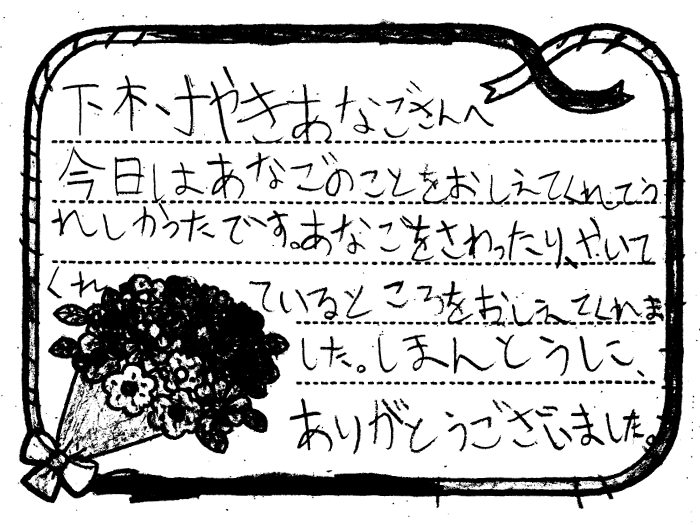 下木、けやきあなごさんへ
今日はあなごのことをおしえてくれてう
れしかったです。あなごをさわったり、やいて
くれ ているところをおしえてくれま
した。しまんとうしに、
ありがとうございました。